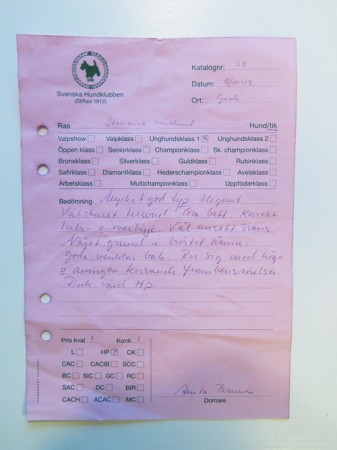 Svenska Hundklubben
(Stiftad 1912)
Katalognr:
Datum:
Ort:
Ras
Hund/tik
Valpshow Valpklass Unghundsklass 1 Unghundsklass 2
Öppen klass Seniorklass Championklass Sk. championklass
Bronsklass Silverklass Guldklass Rubinklass
Safirklass Diamantklass Hederschampionklass Avelsklass
Arbetsklass Multichampionklass Uppfödarklass
Bedömning Mycket god typ. Elegant.
Välskuret huvud. Bra bett. Korrekt
hals- o överlinje. Väl ansatt svans.
Något grund i bröstet ännu.
Goda vinklar bak. Rör sig med höga
o aningen korsande frambensrörelser.
Dock värd HP
Pris kval 1 Konk 1
L HP CK
CAC CACIB SCC
BC SIC GC RC
SAC DC BIR
CACH ACAC MC
Anita
Domare